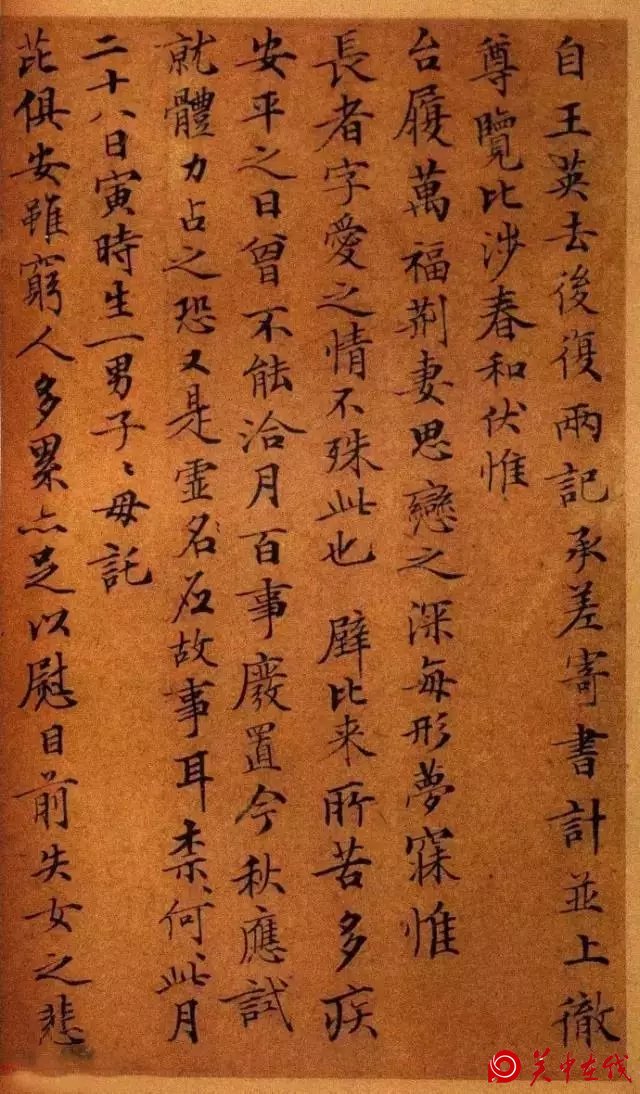 自王英去後復兩記承差寄書計並上徹
尊覽比涉春和伏惟
台履萬福荆妻思戀之深每形夢寐惟
長者字愛之情不殊此也 辟比来所苦多疾
安平之日曾不能洽月百事廢置今秋應試
就體力占之恐又是虚名应故事耳柰何柰何此月
二十八日寅時生一男子子母託
芘俱安雖窮人多累亦足以慰目前失女之悲
关中在线